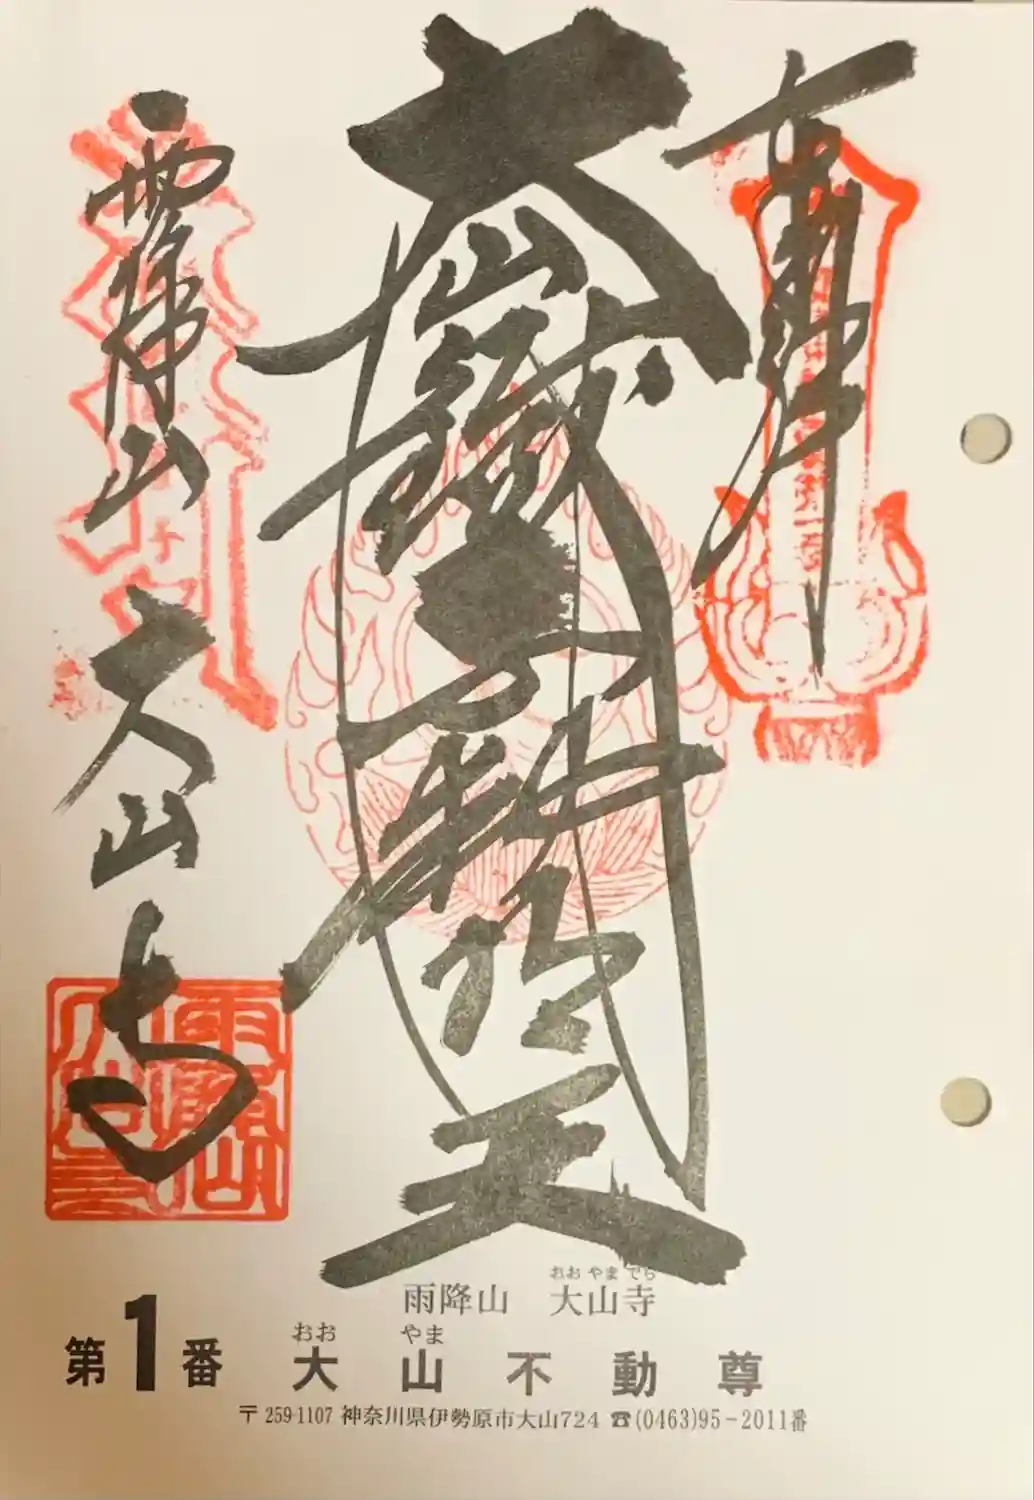 奉拝
大山鐵不動明王
雨降山 大山寺
おお やま でら
雨降山 大山寺
おお やま
第1番 大山不動尊
〒259-1107 神奈川県伊勢原市大山724 ☎(0463)95-2011番